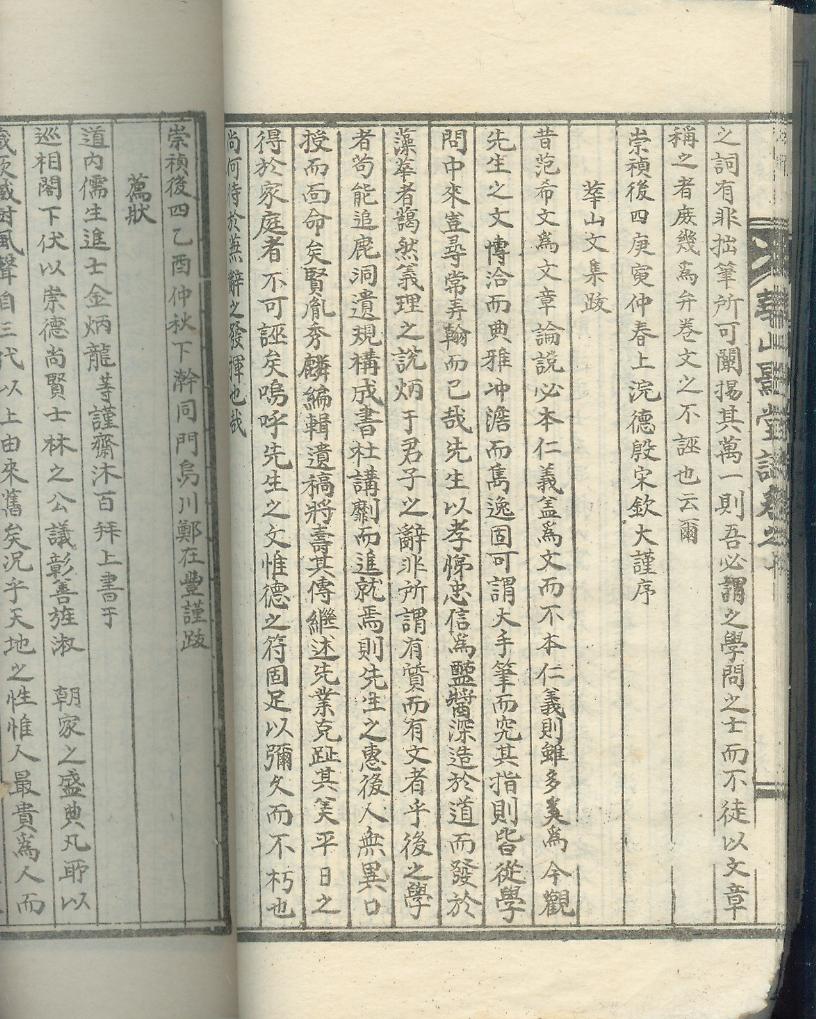 之詞有非拙筆所可闡揚其萬一則吾必謂之學問之士而不徒以文章
稱之者庶幾爲弁卷文之不誣也云爾
崇禎後四庚寅仲春上浣德殷宋欽大謹序
華山文集跋
昔范希文爲文章論說必本仁義盖爲文而不本仁義則雖多奚爲今觀
先生之文愽洽而典雅冲澹而雋逸固可謂大手筆而究其指則皆從學
問中來豈尋常弄翰而已哉先生以孝悌忠信爲醞醬深造於道而發於
藻華者藹然義理之說炳于君子之辭非所謂有質而有文者乎後之學
者苟能追鹿洞遺規構成書社講劘而進就焉則先生之惠後人無異口
授而面命矣賢胤秀麟編輯遺稿將壽其傳繼述先業克趾其美平日之
得於家庭者不可誣矣嗚呼先生之文惟德之符固足以彌久而不朽也
尙何待於蕪辭之發揮也哉
崇禎後四乙酉仲秋下澣同門烏川鄭在豐謹跋
薦狀
道內儒生進士金炳龍等謹齋沐百拜上書于
巡相閤下伏以崇德尙賢士林之公議彰善旌淑 朝家之盛典凡所以
風聲自三代以上由來舊矣况乎天地之性惟人最貴爲人而